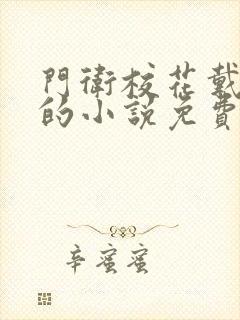 門衛校花戴
的小說免費
辛蜜蜜